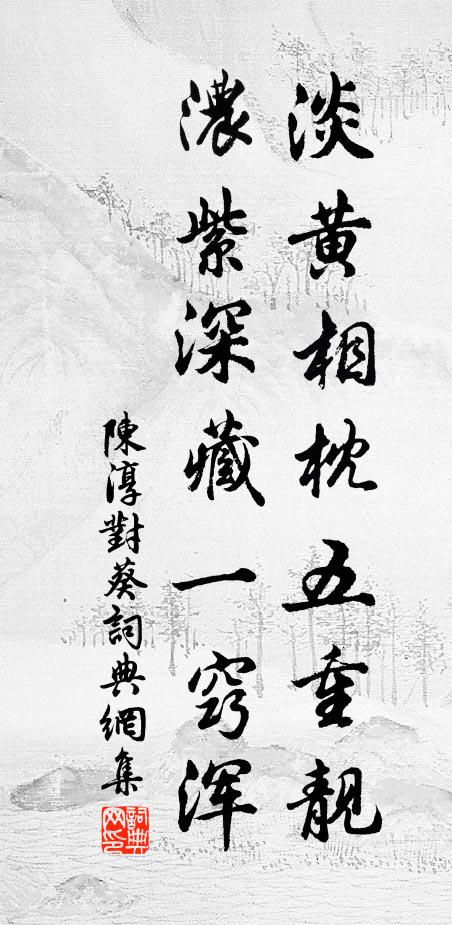 淡黄相枕五重靚
濃紫深藏一窍浑
陳淳對葵詞典網集
詞典网印